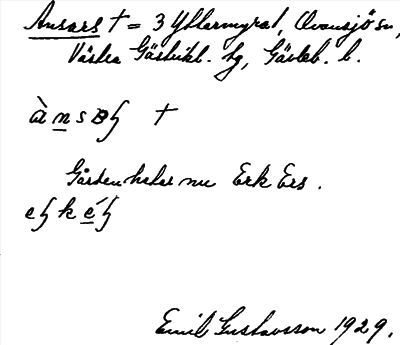 Ansars † = 3 Yttermyra 1, Ovansjö sn,
Västra Gästrikl. hg, Gävleb. l.
à n s ꞵ ɧ †
Gården heter nu Erk Ers.
eɧ k éɧ
Emil Gustavsson 1929.